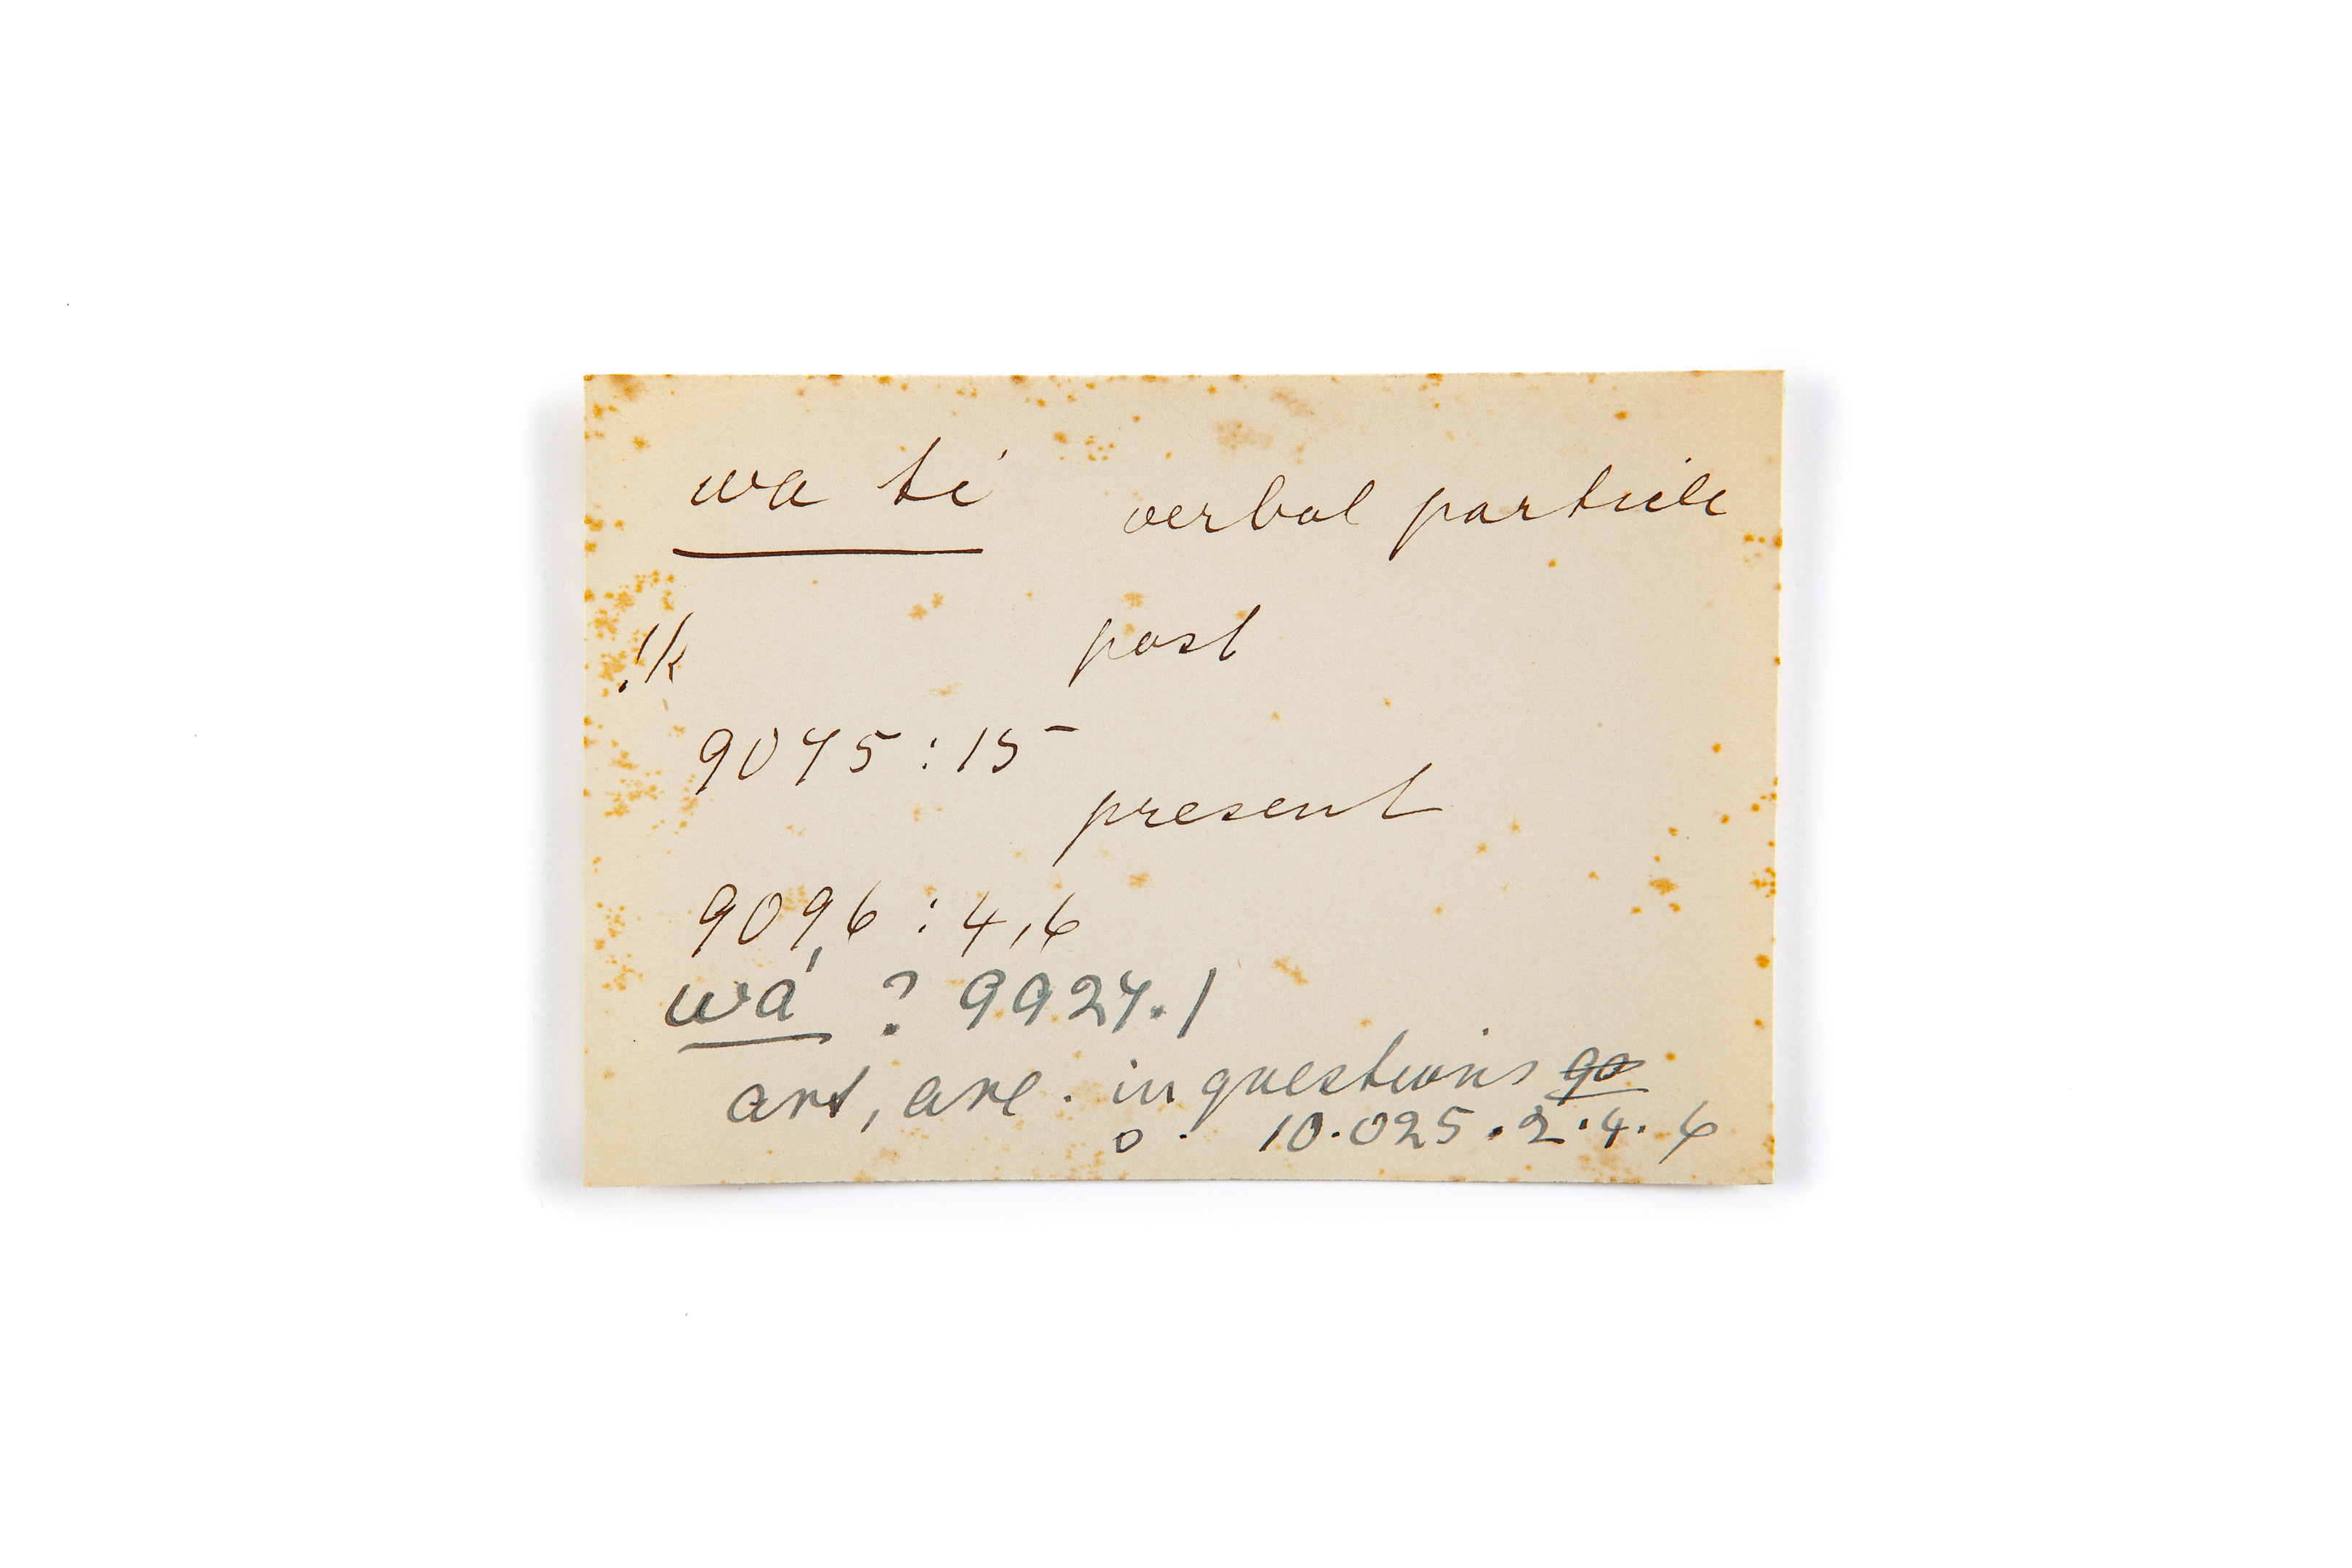 wa ti verbal particle
!k past
9075 : 15
present
9096 : 4,6
wá ? 9927.1
art, are. in questions go
o . 10.025.2.4.6